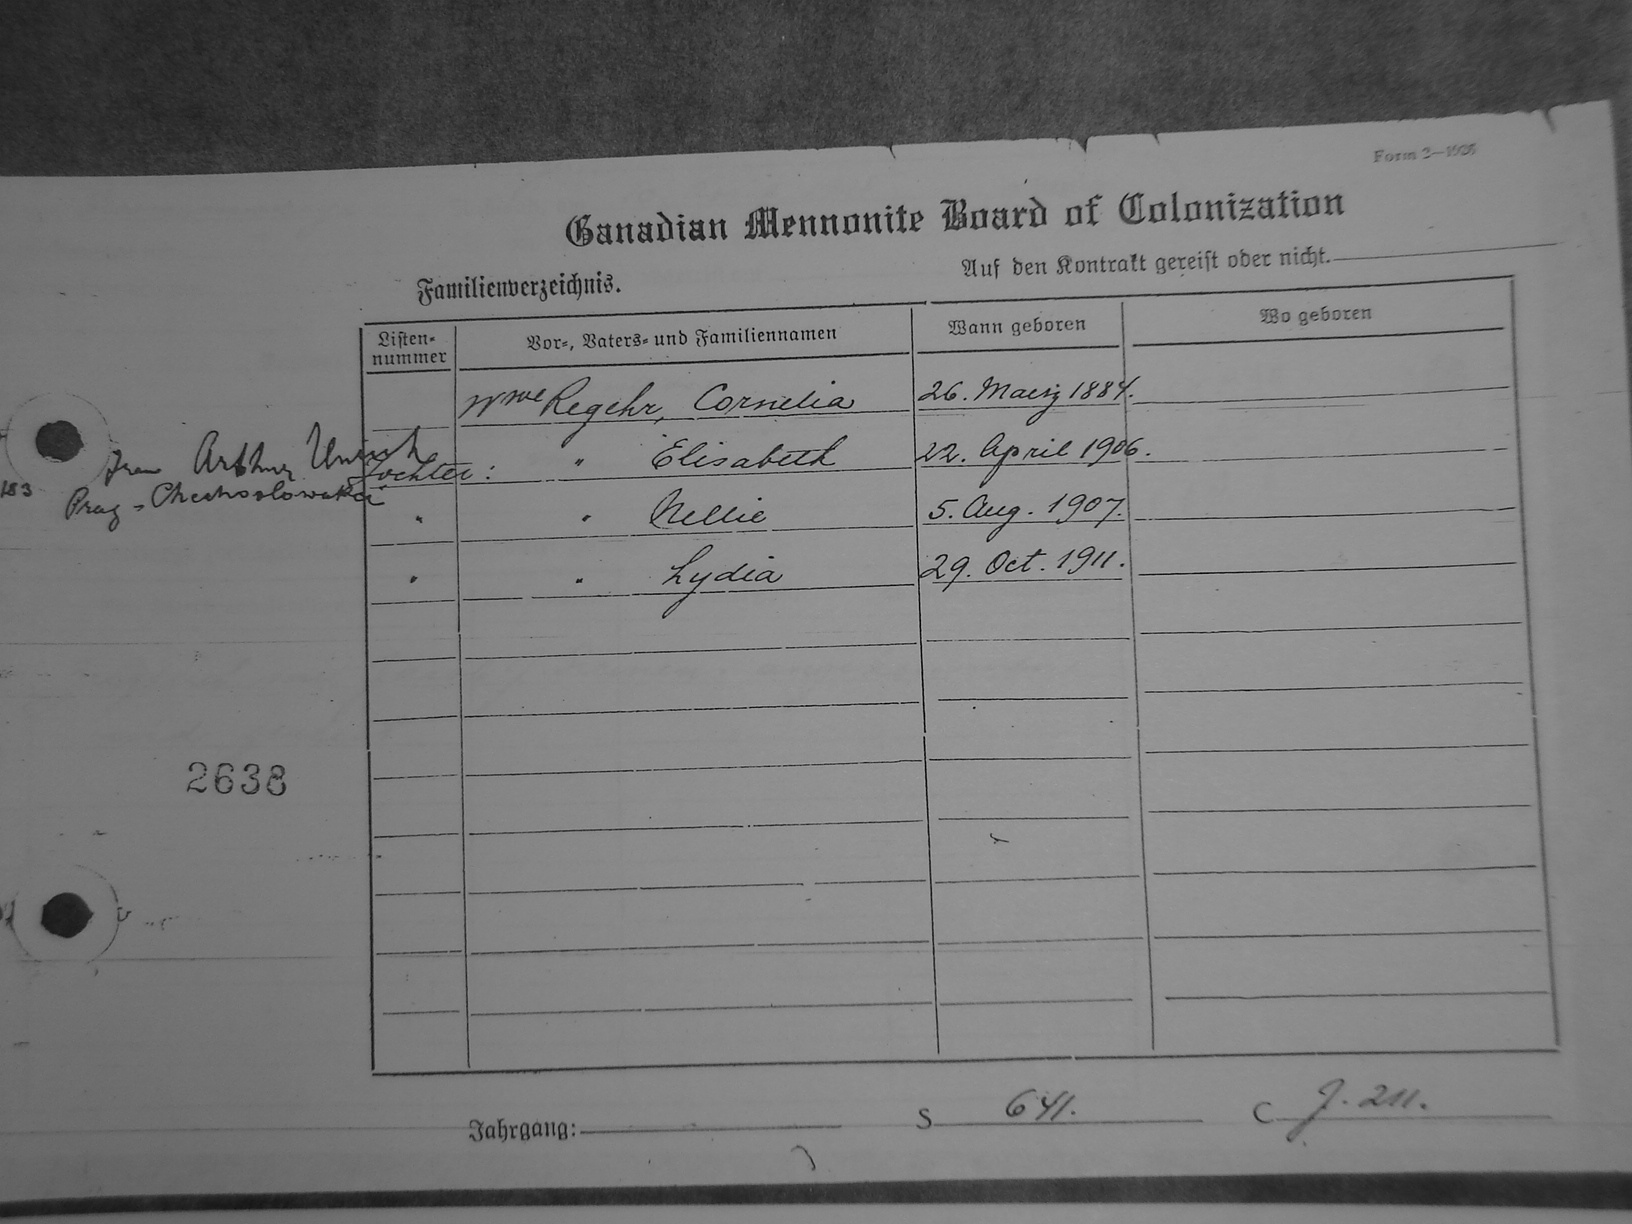 Form 2—1926
Canadian Mennonite Board of Colonization
Familienverzeichnis.
Auf den Kontrakt gereist oder nicht.
Listen-
nummer
Vor-, Vaters- und Familiennamen
Wann geboren
Wo geboren
Wwe Regehr, Cornelia 26. Maerz 1884.
Frau Arthur
Tochter: " Elisabeth 22. April 1906.
183
Prag - Chechoslowakei
" " Nellie 5. Aug. 1907.
" " Lydia 29. Oct. 1911.
2638
Jahrgang: S 641. C J. 211.